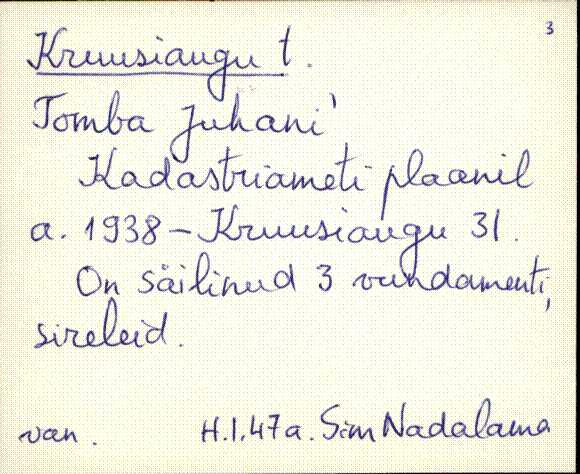 3
Kruusiaugu t.
Tomba Juhani'
Kadastriameti plaanil
a. 1938 – Kruusiaugu 31.
On säilinud 3 vundamenti,
sireleid.
van. H.I.47a. Sim Nadalama